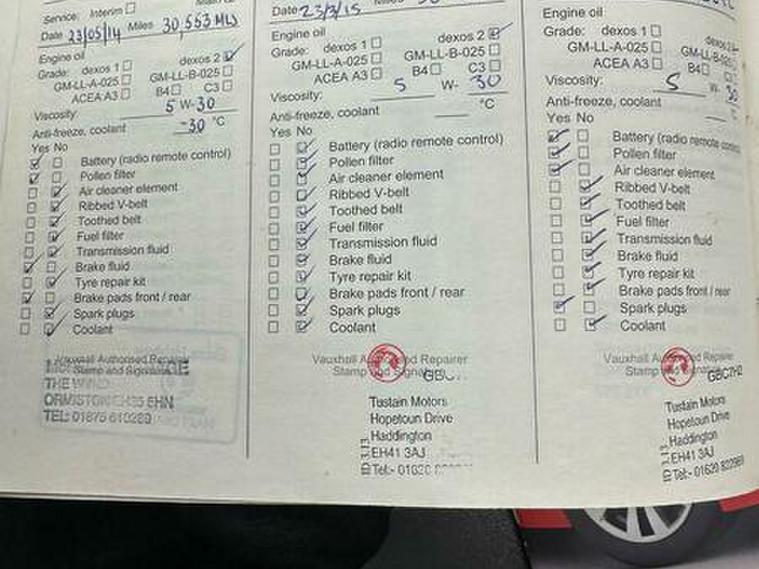 Service: Interim
Date 23/05/14 Miles 30,553 MLS
Engine oil
Grade: dexos 1 dexos 2
GM-LL-A-025 GM-LL-B-025
ACEA A3 B4 C3
Viscosity: 5 W-30
Anti-freeze, coolant -30 °C
Yes No
Battery (radio remote control)
Pollen filter
Air cleaner element
Ribbed V-belt
Toothed belt
Fuel filter
Transmission fluid
Brake fluid
Tyre repair kit
Brake pads front / rear
Spark plugs
Coolant
Vauxhall Authorised Repairer
Stamp and Signature
THE WYND
ORMISTON EH35 5HN
TEL: 01875 610289
Date 23/3/15 Miles
Engine oil
Grade: dexos 1 dexos 2
GM-LL-A-025 GM-LL-B-025
ACEA A3 B4 C3
Viscosity: 5 W- 30
Anti-freeze, coolant °C
Yes No
Battery (radio remote control)
Pollen filter
Air cleaner element
Ribbed V-belt
Toothed belt
Fuel filter
Transmission fluid
Brake fluid
Tyre repair kit
Brake pads front / rear
Spark plugs
Coolant
Vauxhall Authorised Repairer
Stamp and Signature
Tustain Motors
Hopetoun Drive
Haddington
EH41 3AJ
Tel:- 01620
Engine oil
Grade: dexos 1 dexos 2
GM-LL-A-025 GM-LL-B-025
ACEA A3 B4
Viscosity: 5 W- 30
Anti-freeze, coolant °C
Yes No
Battery (radio remote control)
Pollen filter
Air cleaner element
Ribbed V-belt
Toothed belt
Fuel filter
Transmission fluid
Brake fluid
Tyre repair kit
Brake pads front / rear
Spark plugs
Coolant
Vauxhall Authorised Repaire
Stamp and Signature
Tustain Motors
Hopetoun Drive
Haddington
EH41 3AJ
Tel:- 01620